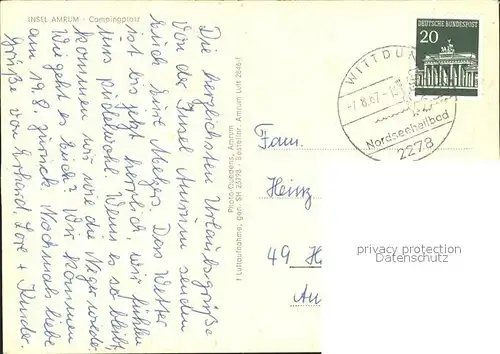 INSEL AMRUM - Campingplatz
Die herzlichsten Urlaubsgrüße
von der Insel Amrum senden
Euch Eure Metzes. Das Wetter
ist bis jetzt herrlich, wir fühlen
uns pudelwohl. Wenn es so bleibt,
kommen wir wie die Neger wieder.
Wie geht es Euch? Wir kommen
am 19.8. zurück. Nochmals liebe
Grüße von Erhard, Lore + Kinder.
Photo-Quedens, Amrum
Luftaufnahme, gen. SH 25798 - Bestellnr. Amrum Luft 2846-f
DEUTSCHE BUNDESPOST
20
WITTDÜN
-7.8.67.-1
Nordseeheilbad
2278
Fam.
Heinz
49 H
privacy protection
Datenschutz